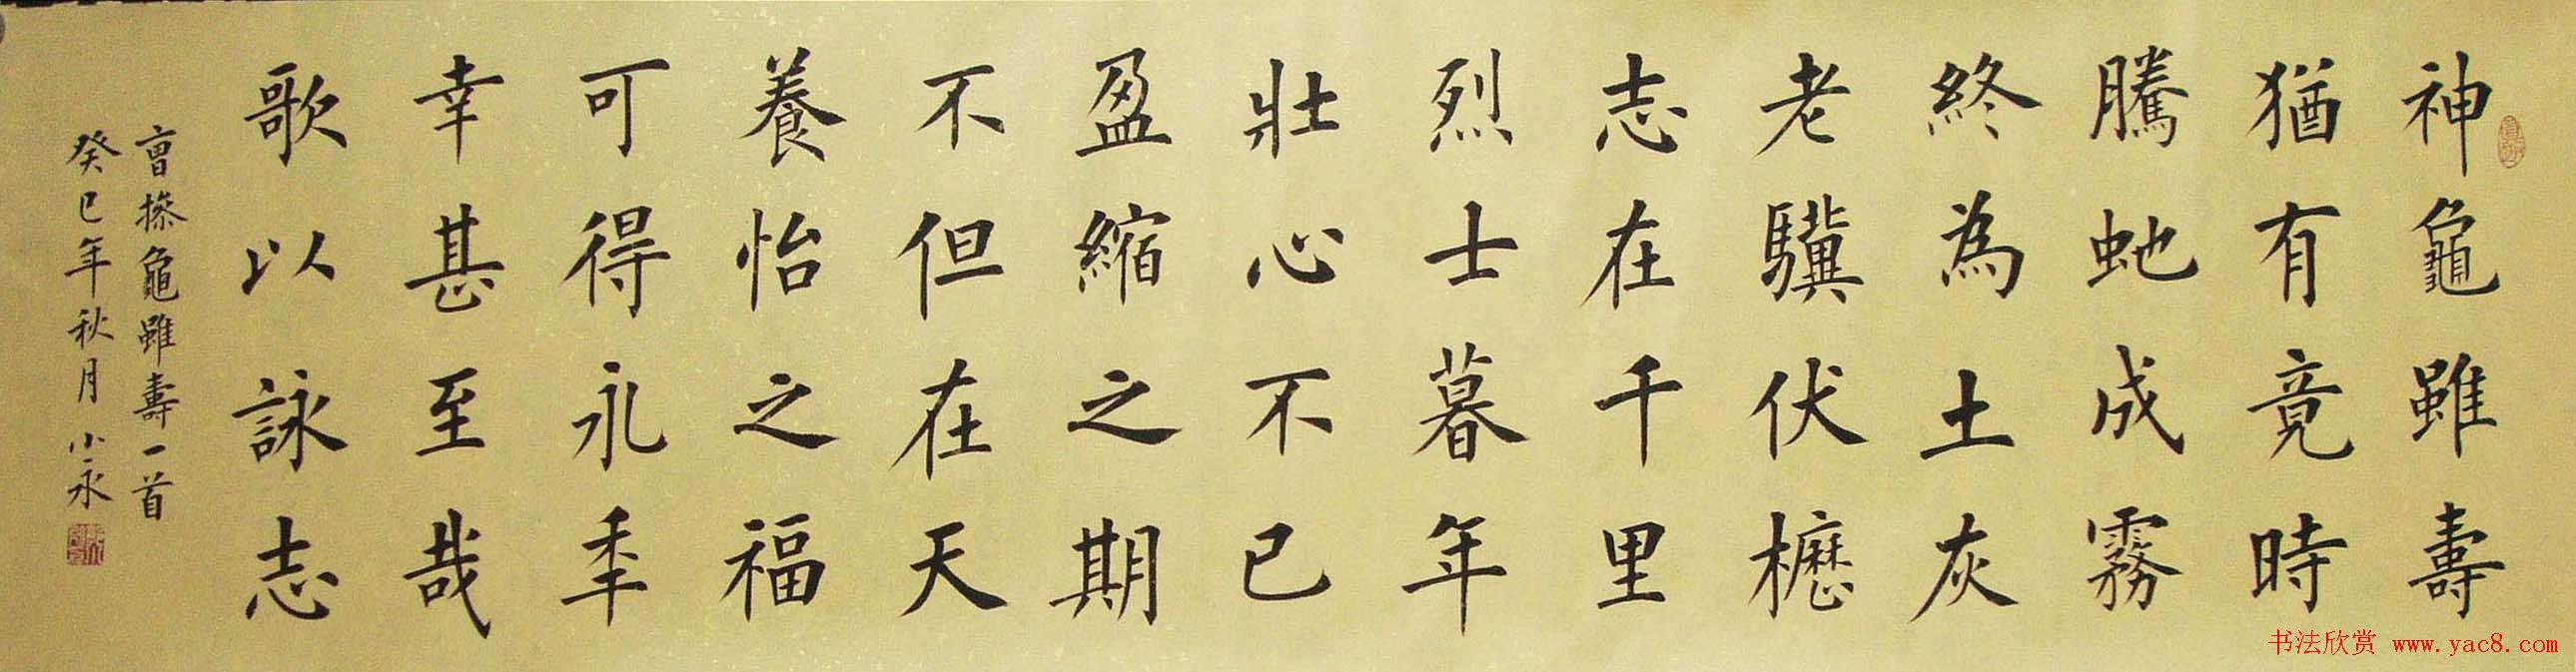 神龜雖壽
猶有竟時
騰虵成霧
終為土灰
老驥伏櫪
志在千里
烈士暮年
壯心不已
盈縮之期
不但在天
養怡之福
可得永秊
幸甚至哉
歌以詠志
曹操龜雖壽一首
癸巳年秋月 小永
书法欣赏 www.yac8.com